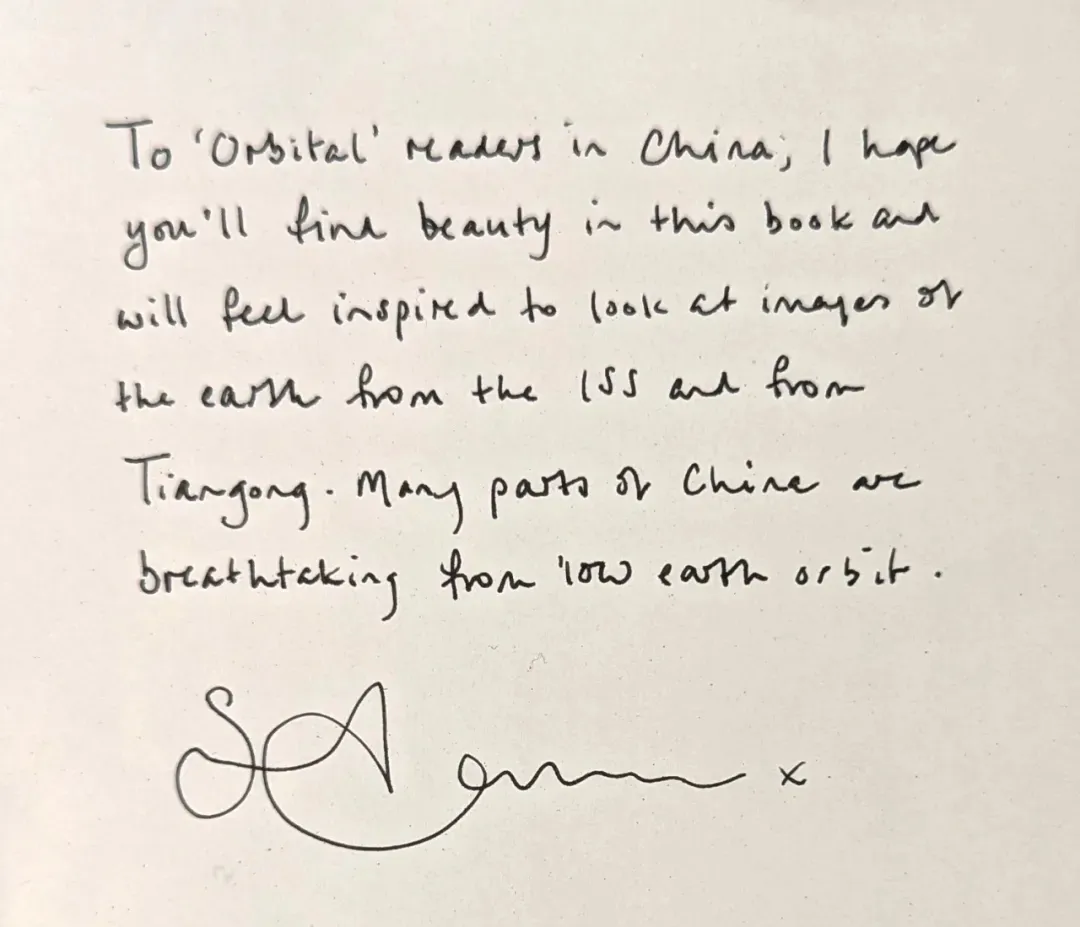 To 'Orbital' readers in China; I hope
you'll find beauty in this book and
will feel inspired to look at images of
the earth from the ISS and from
Tiangong. Many parts of China are
breathtaking from low earth orbit.
x